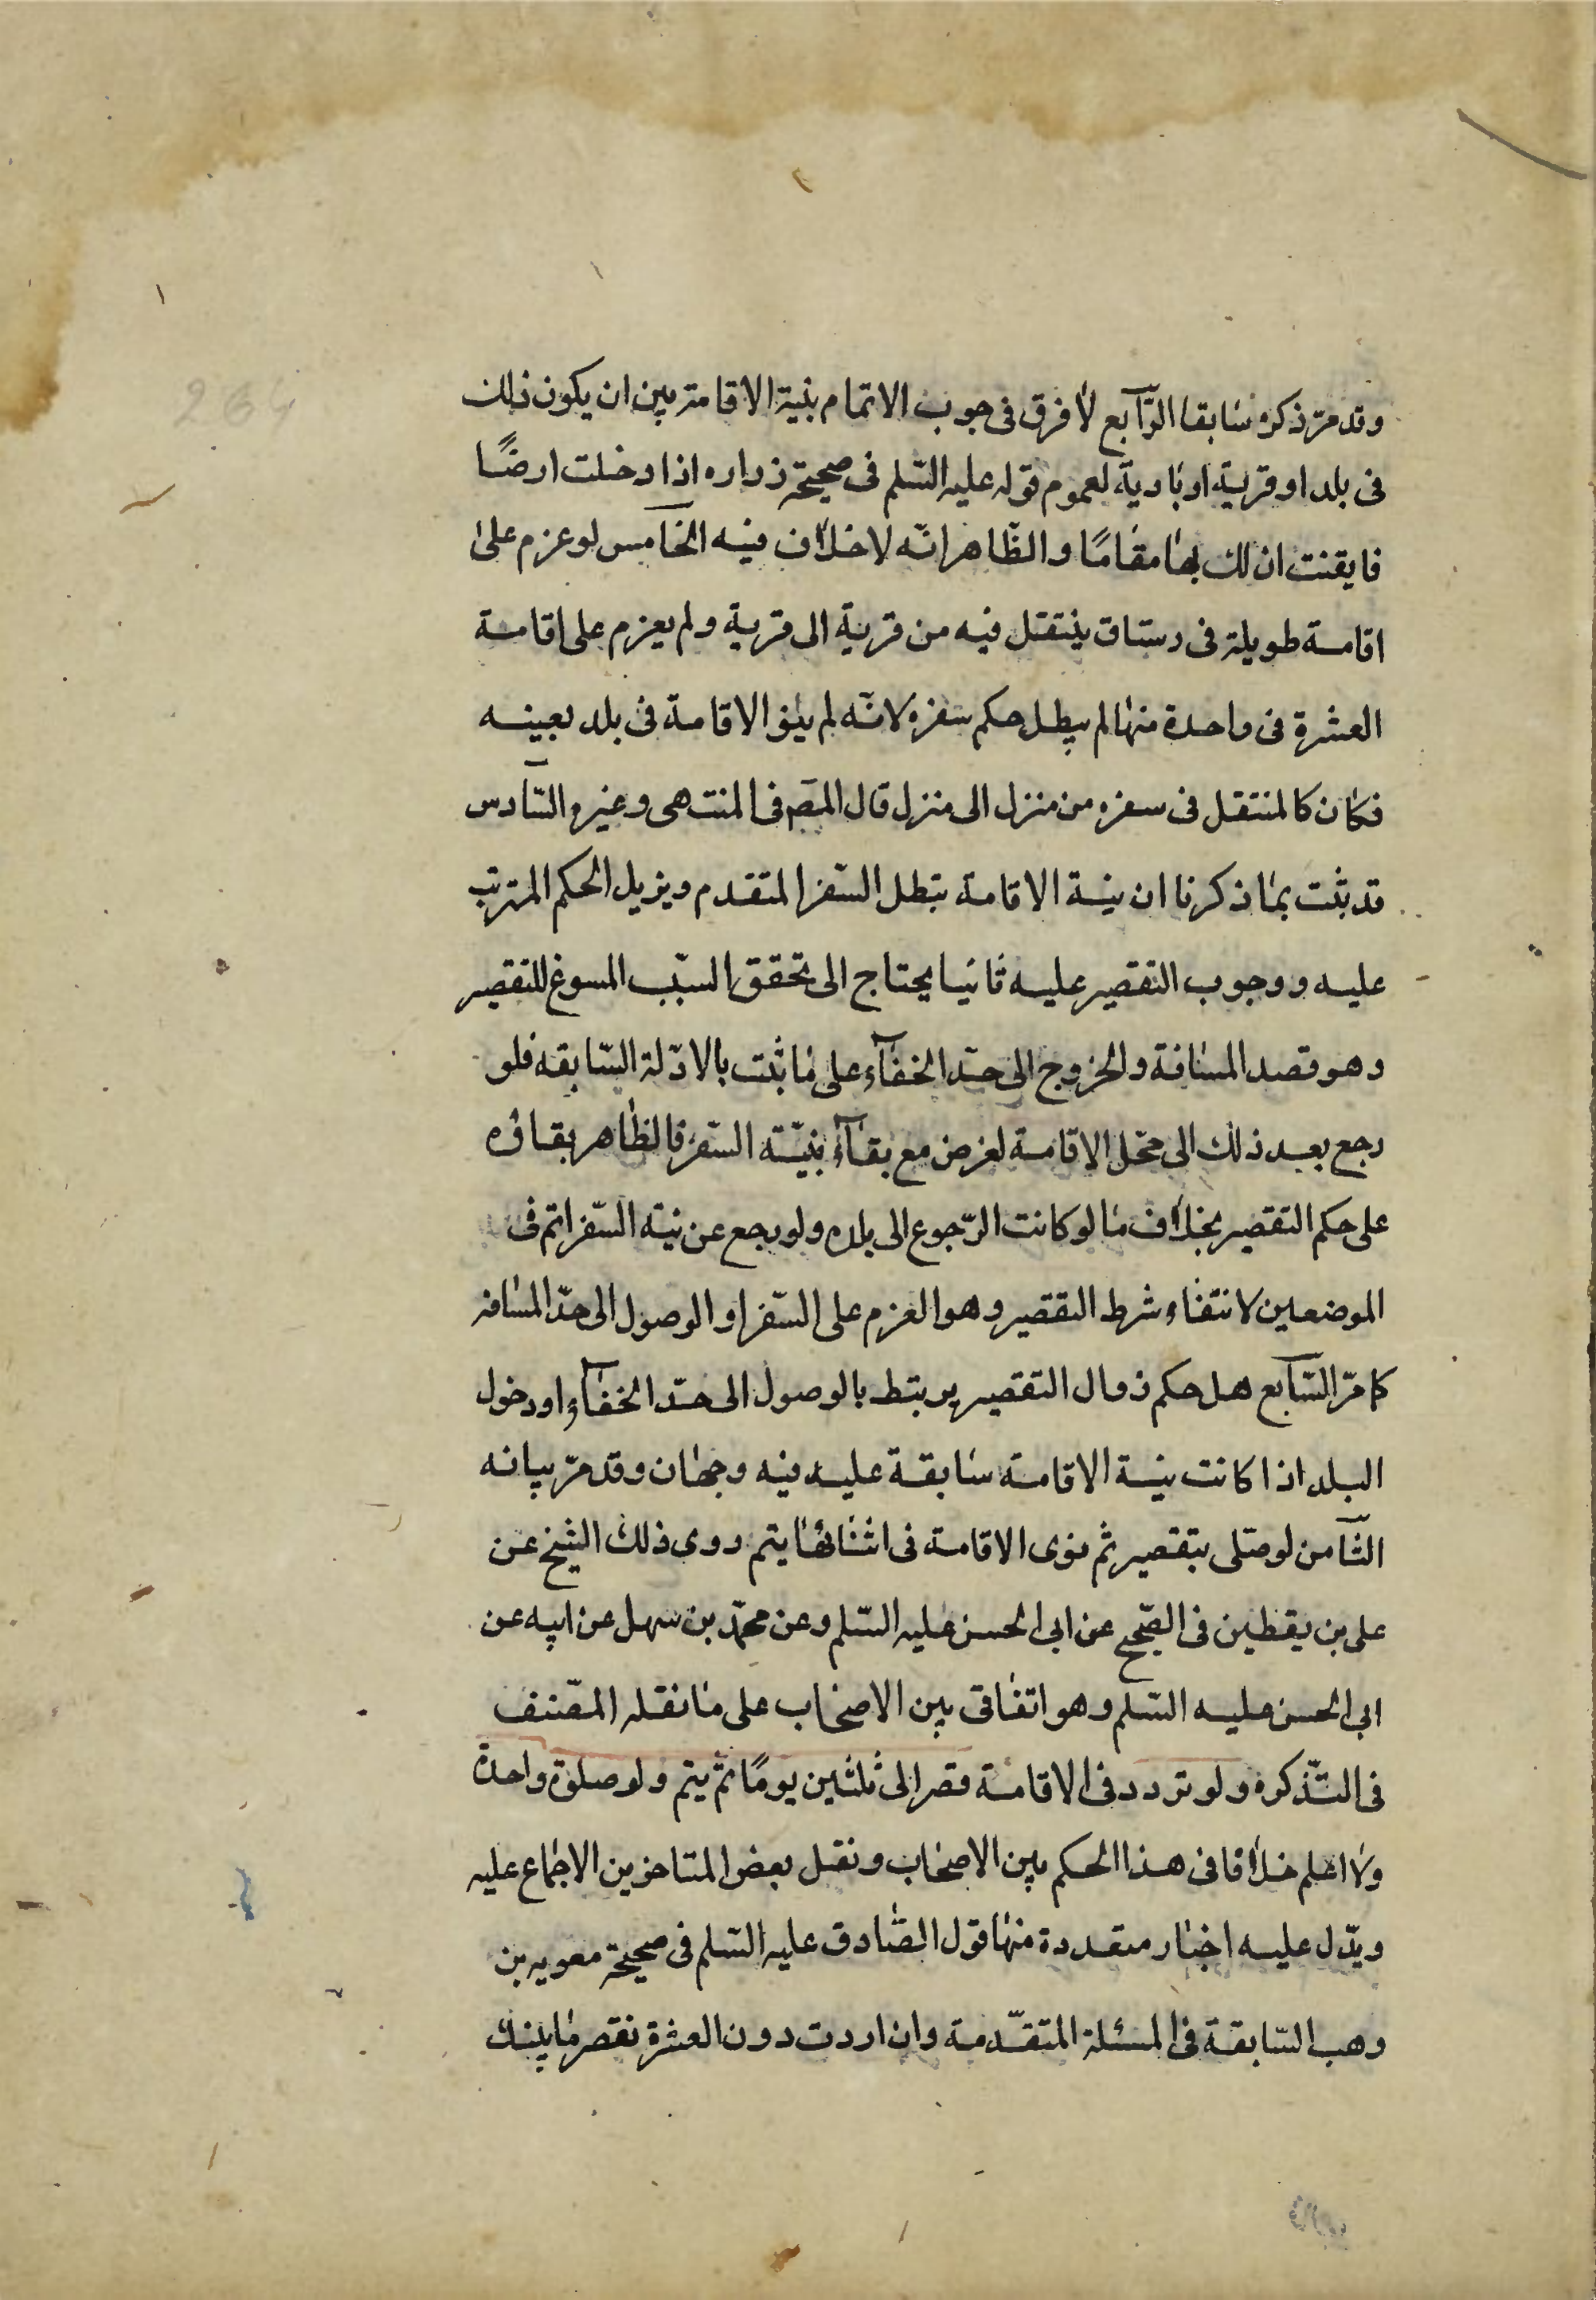 وقد مرّ ذكره سابقا الرّابع لا فرق فى وجوب الاتمام بنية الاقامة بين ان يكون ذلك
فى بلد او قرية او بادية لعموم قوله عليه السّلم فى صحيحة زراره اذا دخلت ارضًا
فايقنت ان لك بها مقامًا والظّاهر انّه لا خلاف فيه الخامس لو عزم على
اقامة طويلة فى رستاق ينتقل فيه من قرية الى قرية ولم يعزم على اقامة
العشرة فى واحدة منها لم يبطل حكم سفره لانّه لم ينو الاقامة فى بلد بعينه
فكان كالمنتقل فى سفره من منزل الى منزل قال المصّ فى المنتهى وغيره السّادس
قد ثبت بما ذكرنا ان نية الاقامة تبطل السّفر المتقدم ويزيل الحكم المترتب
عليه ووجوب التقصير عليه ثانيا يحتاج الى تحقق السبّب المسوغ للتقصير
وهو قصد المسافة والخروج الى حدّ الخفآء على ما ثبت بالادّلة السّابقه فلو
رجع بعد ذلك الى محّل الاقامة لغرض مع بقآء نيّته السّفر فالظاهر بقاؤه
على حكم التقصير بخلاف ما لو كانت الرّجوع الى بلده ولو رجع عن نيته السّفر اتم فى
الموضعين لانتفاء شرط التقصير وهو العزم على السّفر او الوصول الى حدّ المسافة
كما مرّ السّابع هل حكم زوال التقصير يرتبط بالوصول الى حدّ الخفآء او دخول
البلد اذا كانت نية الاقامة سابقة عليه فيه وجهان وقد مرّ بيانه
الثّامن لو صلّى بتقصير ثم نوى الاقامة فى اثنائها يتم روى ذلك الشيخ عن
على بن يقطين فى الصّحيح عن ابى الحسن عليه السّلم وعن محمّد بن سهل عن ابيه عن
ابى الحسن عليه السّلم وهو اتفاقى بين الاصحاب على ما نقله المصّنف
فى التّذكره ولو تردد فى الاقامة قصر الى ثلثين يومًا ثم يتم ولو صلوة واحدة
ولا اعلم خلافا فى هذا الحكم بين الاصحاب ونقل بعض المتاخرين الاجماع عليه
ويدّل عليه اخبار متعددة منها قول الصّادق عليه السّلم فى صحيحة معويه بن
وهب السّابقة فى المسئلة المتقدّمة وان اردت دون العشرة نقصر ما بينك